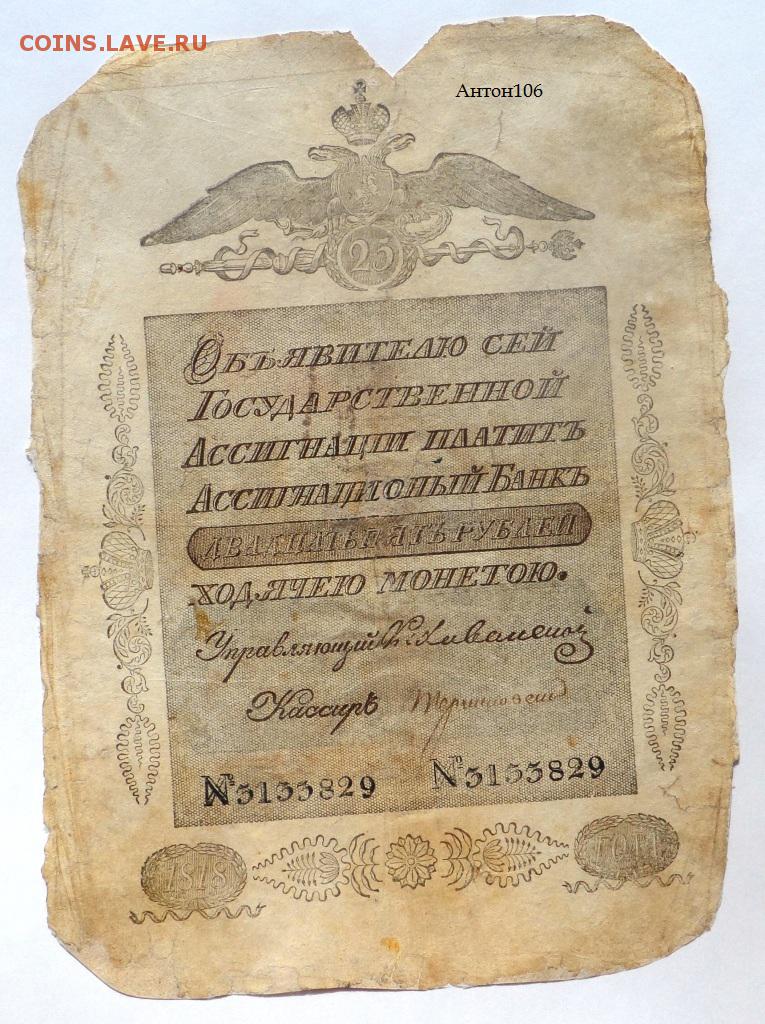 COINS.LAVE.RU
Антон106
25
Объявителю сей
Государственной
Ассигнаціи платитъ
Ассигнаціоный Банкъ
двадцать пять рублей
ходячею монетою.
Управляющий
Кассиръ
№3133829 №3133829
1818 года